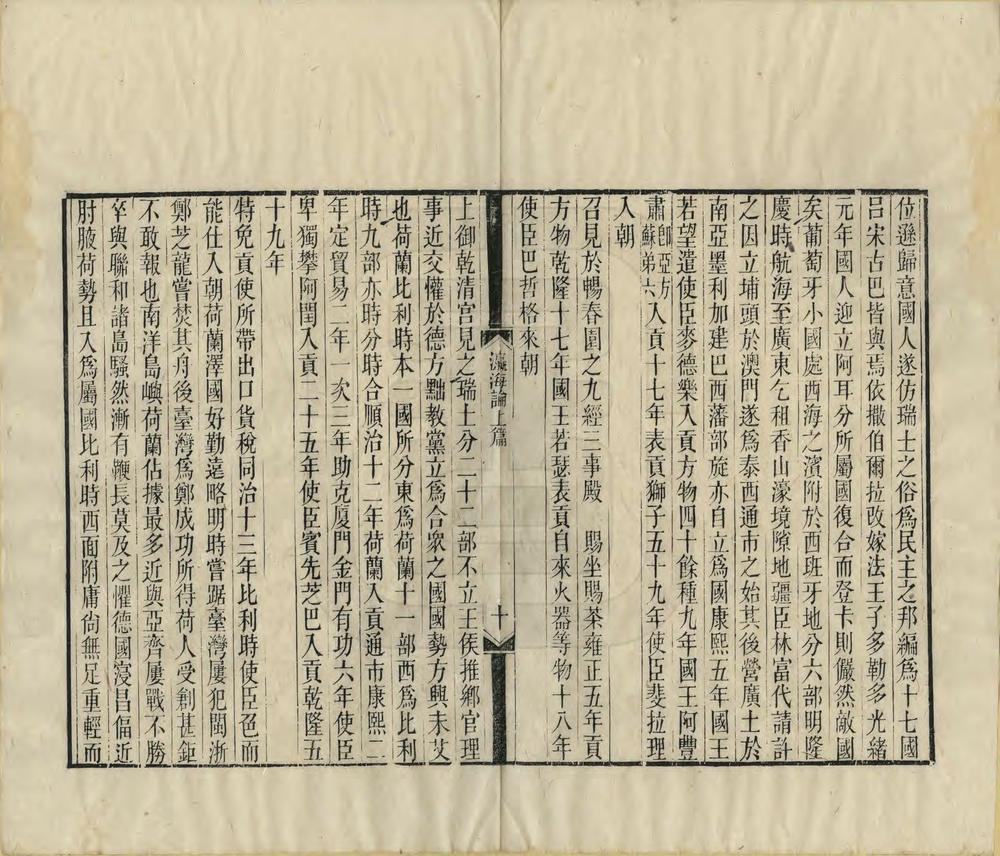 位遜歸意國人遂仿瑞士之俗為民主之邦編為十七國
呂宋古巴皆與焉依撒伯爾拉改嫁法王子多勒多光緒
元年國人迎立阿耳分所屬國復合而登卡則儼然敵國
矣葡萄牙小國處西海之濱附於西班牙地分六部明隆
慶時航海至廣東乞租香山濠境隙地疆臣林富代請許
之因立埔頭於澳門遂為泰西通市之始其後營廣土於
南亞墨利加建巴西藩部旋亦自立為國康熙五年國王
若望遣使臣麥德樂入貢方物四十餘種九年國王阿豐
肅即亞方蘇弟六入貢十七年表貢獅子五十九年使臣斐拉理
入朝
召見於暢春園之九經三事殿 賜坐賜茶雍正五年貢
方物乾隆十七年國王若瑟表貢自來火器等物十八年
使臣巴哲格來朝
瀛海論上篇 十
上御乾清宮見之瑞士分二十二部不立王侯推鄉官理
事近交懽於德方黜教黨立為合眾之國國勢方興未艾
也荷蘭比利時本一國所分東為荷蘭十一部西為比利
時九部亦時分時合順治十二年荷蘭入貢通市康熙二
年定貿易二年一次三年助克厦門金門有功六年使臣
卑獨攀阿閏入貢二十五年使臣賓先芝巴入貢乾隆五
十九年
特免貢使所帶出口貨稅同治十三年比利時使臣色而
能仕入朝荷蘭澤國好勤遠略明時嘗踞臺灣屢犯閩浙
鄭芝龍嘗焚其舟後臺灣為鄭成功所得荷人受創甚鉅
不敢報也南洋島嶼荷蘭佔據最多近與亞齊屢戰不勝
卒與聯和諸島騷然漸有鞭長莫及之懼德國寖昌偪近
肘腋荷勢且入為屬國比利時西面附庸尙無足重輕而